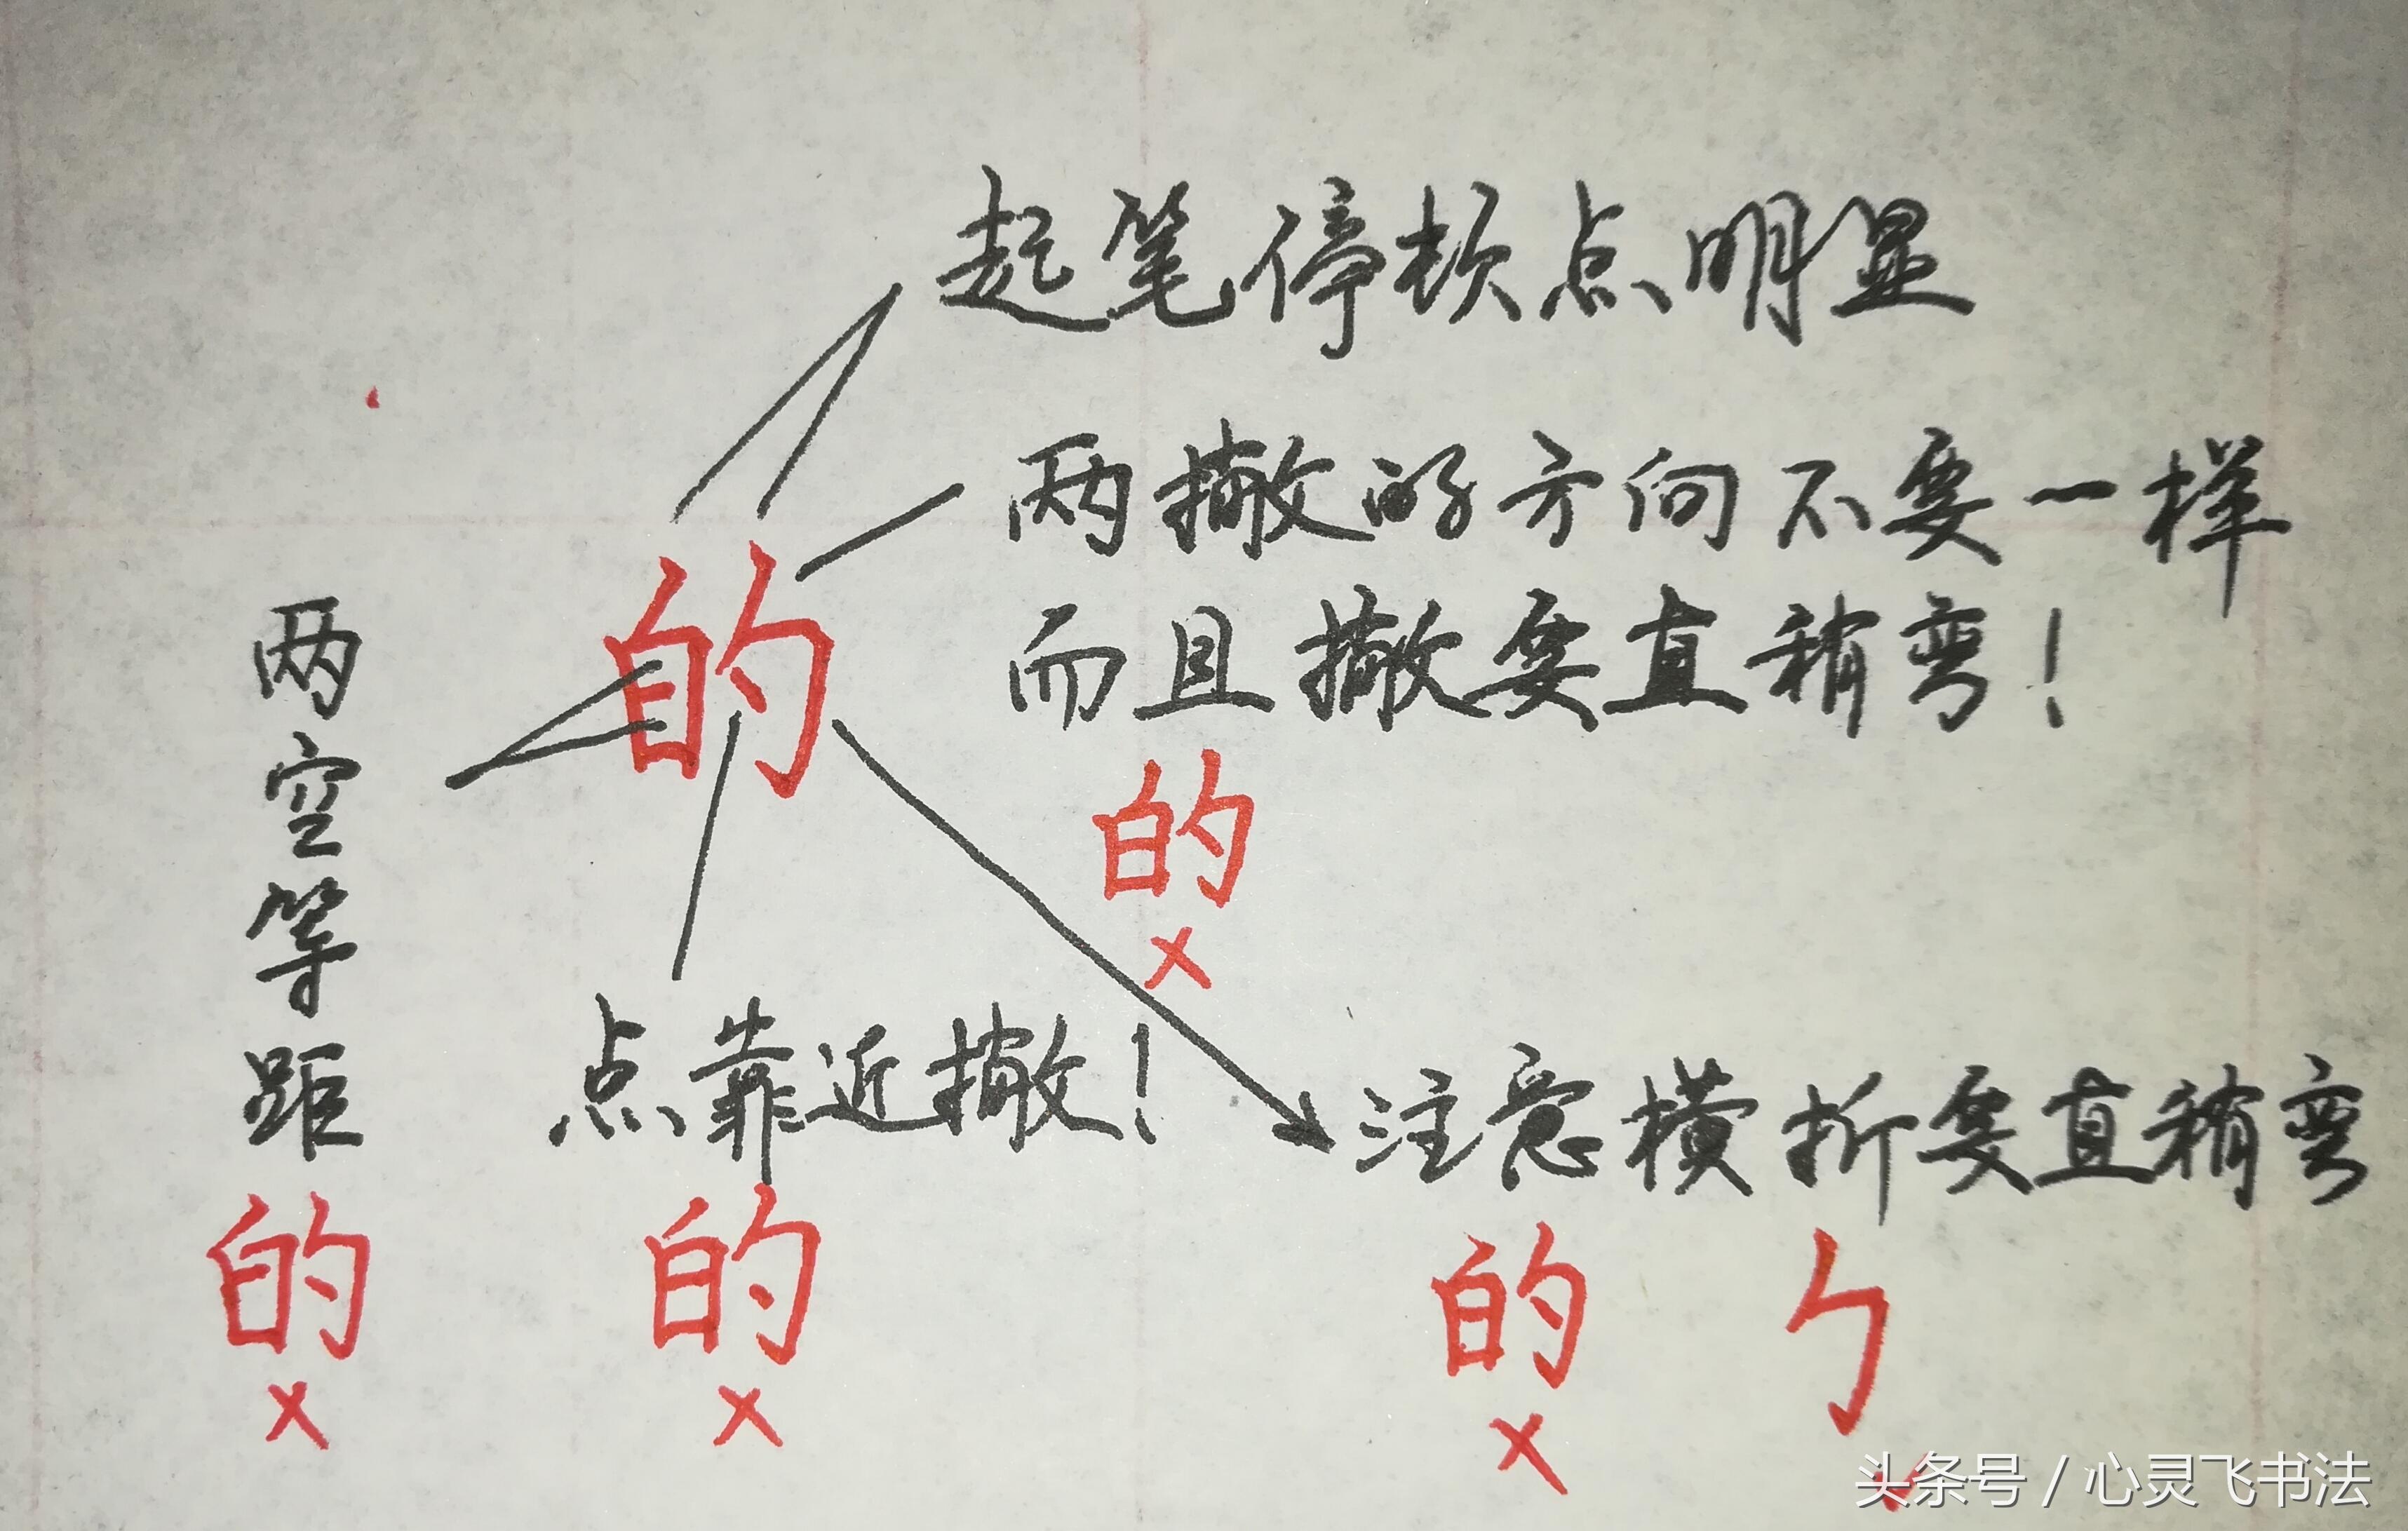 起笔停顿点明显
两撇的方向不要一样
而且撇要直稍弯！
的
的
×
两空等距
的
×
点靠近撇！
的
×
注意横折要直稍弯
的
×
头条号 / 心灵飞书法